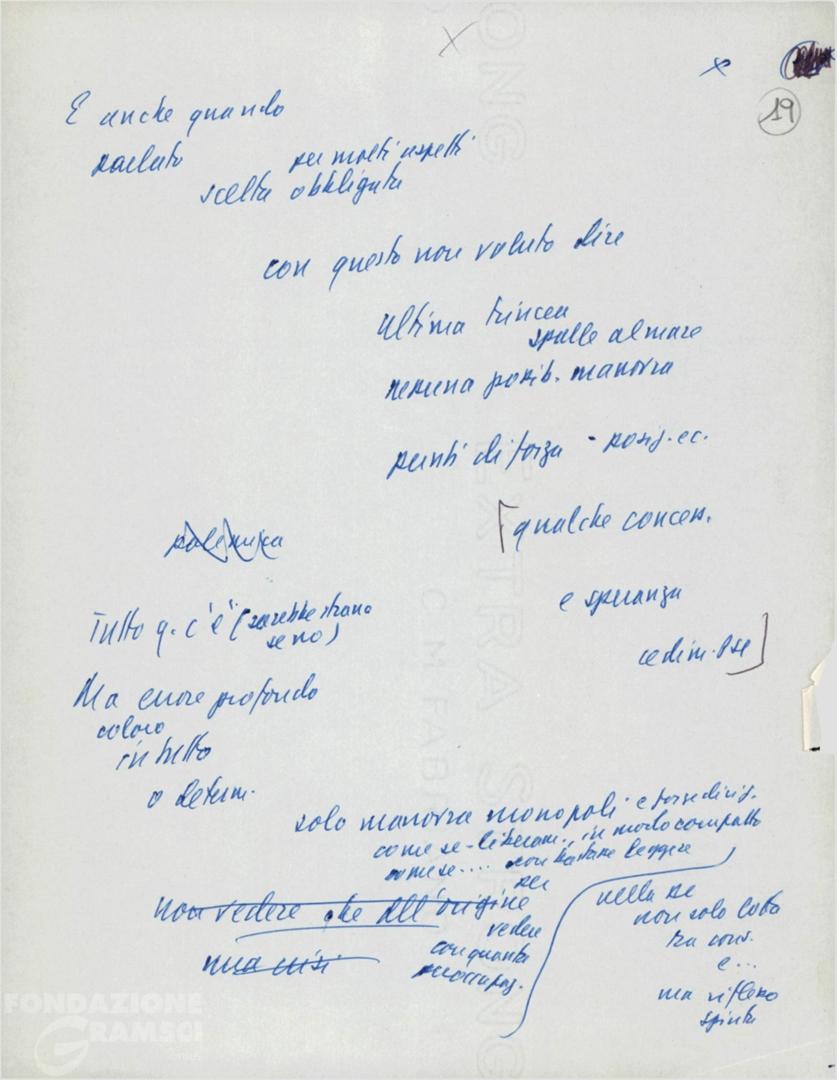 19
E anche quando
parlato per molti aspetti
scelta obbligata
con questo non voluto dire
ultima trincea
spalle al mare
nessuna possib. manovra
punti di forza - posiz. ec.
polemica
[qualche concess.
e speranza
cedim. Pse]
Tutto q. c'è (sarebbe strano
se no)
Ma errore profondo
coloro
in tutto
o determ.
solo manovra monopoli e forze dirig.
come se - liberam., in modo compatto
come se .... non bastasse leggere
per
non vedere che all'origine
vedere
con quanta
preoccupaz.
una crisi
nella
non solo lotta
tra cons.
e...
ma riflesso
spinta
FONDAZIONE
GRAMSCI